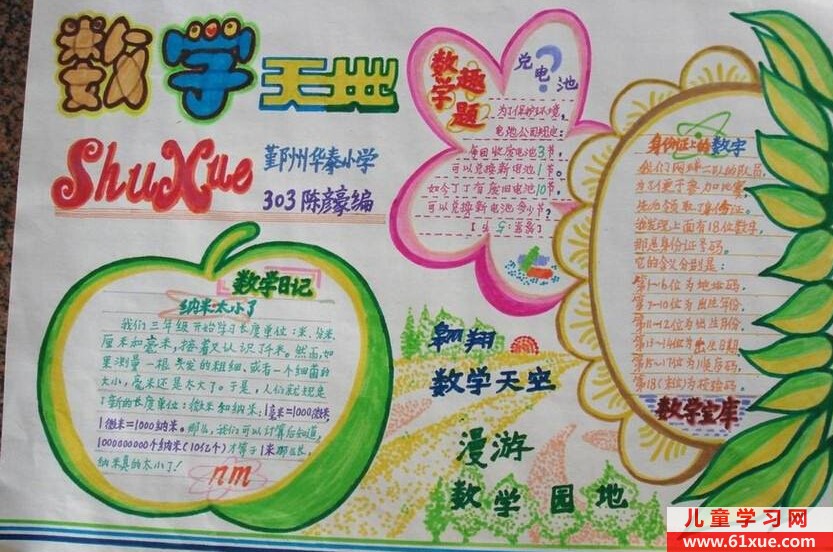 数学天地
ShuXue
鄞州华泰小学
303 陈彦豪编
数学趣题
兑电池
?
为了保护环境,
电池公司规定:
每回收废电池3节,
可以兑换新电池1节。
如今丁丁有废旧电池10节,
可以兑换新电池多少节?
[答案:5节]
身份证上的数字
我们网球二队的队员,
为了更于参加比赛,
还为领取了身份证。
我发现上面有18位数字,
那是身份证号码。
它的含义分别是:
第1~6位为地址码。
第7~10位为出生年份。
第11~12位为出生月份。
第13~14位为出生日期。
第15~17位为顺序码。
第18(末位)为校验码。
数学宝库
数学日记
纳米太小了
我们三年级开始学习长度单位:米、分米、
厘米和毫米,接着又认识了千米。然而,如
果测量一根头发的粗细,或者一个细菌的
大小,毫米还是太大了。于是,人们就规定
了新的长度单位:微米和纳米:1毫米=1000微米,
1微米=1000纳米。那么,我们可以计算后知道,
1000000000个纳米(10亿个)才等于1米那么长,
纳米真的太小了!
nm
翱翔
数学天空
漫游
数学园地
儿童学习网
www.61xue.com